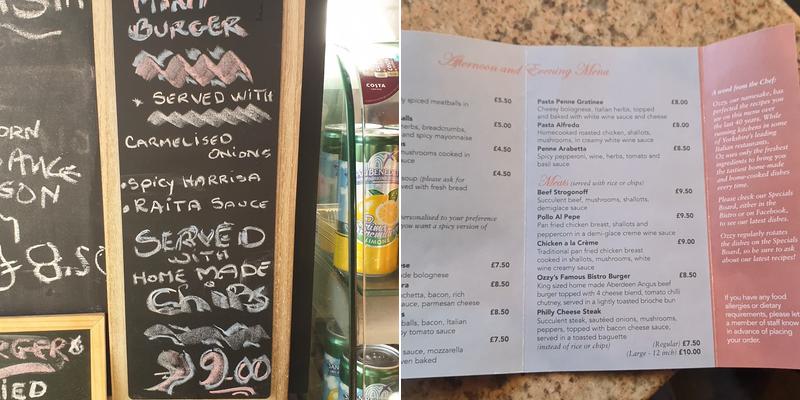 MINT
BURGER
SERVED WITH
CARMELISED
ONIONS
• SPICY HARRISA
• RAITA SAUCE
SERVED
WITH
HOME MADE
CHIPS
9.00
ORN
SON
8.50
IED
COSTA
LIMONE
Afternoon and Evening Menu
y spiced meatballs in £5.50
alls
herbs, breadcrumbs, £5.00
and spicy mayonnaise
mushrooms cooked in £4.50
soup (please ask for £4.50
ved with fresh bread
personalised to your preference
u want a spicy version of
ese £7.50
ade bolognese
ra £8.50
nchetta, bacon, rich
sauce, parmesan cheese
s £8.50
balls, bacon, Italian
y tomato sauce
£7.50
sauce, mozzarella
ven baked
Pasta Penne Gratinee £8.00
Cheesy bolognese, Italian herbs, topped
and baked with white wine sauce and cheese
Pasta Alfredo £8.00
Homecooked roasted chicken, shallots,
mushrooms, in creamy white wine sauce
Penne Arabetta £8.50
Spicy pepperoni, wine, herbs, tomato and
basil sauce
Meats (served with rice or chips)
Beef Strogonoff £9.50
Succulent beef, mushrooms, shallots,
demiglaze sauce
Pollo Al Pepe £9.50
Pan fried chicken breast, shallots and
peppercorn in a demi-glace creme wine sauce
Chicken a la Crème £9.00
Traditional pan fried chicken breast
cooked in shallots, mushrooms, white
wine creamy sauce
Ozzy's Famous Bistro Burger £8.50
King sized home made Aberdeen Angus beef
burger topped with 4 cheese blend, tomato chilli
chutney, served in a lightly toasted brioche bun
Philly Cheese Steak
Succulent steak, sautéed onions, mushrooms,
peppers, topped with bacon cheese sauce,
served in a toasted baguette
(instead of rice or chips) (Regular) £7.50
(Large - 12 inch) £10.00
A word from the Chef:
Ozzy, our namesake, has
perfected the recipes you
see on this menu over
the last 40 years. While
running kitchens in some
of Yorkshire's leading
Italian restaurants.
Oz uses only the freshest
ingredients to bring you
the tastiest home made
and home-cooked dishes
every time.
Please check our Specials
Board, either in the
Bistro or on Facebook,
to see our latest dishes.
Ozzy regularly rotates
the dishes on the Specials
Board, so be sure to ask
about our latest recipes!
If you have any food
allergies or dietary
requirements, please let
a member of staff know
in advance of placing
your order.